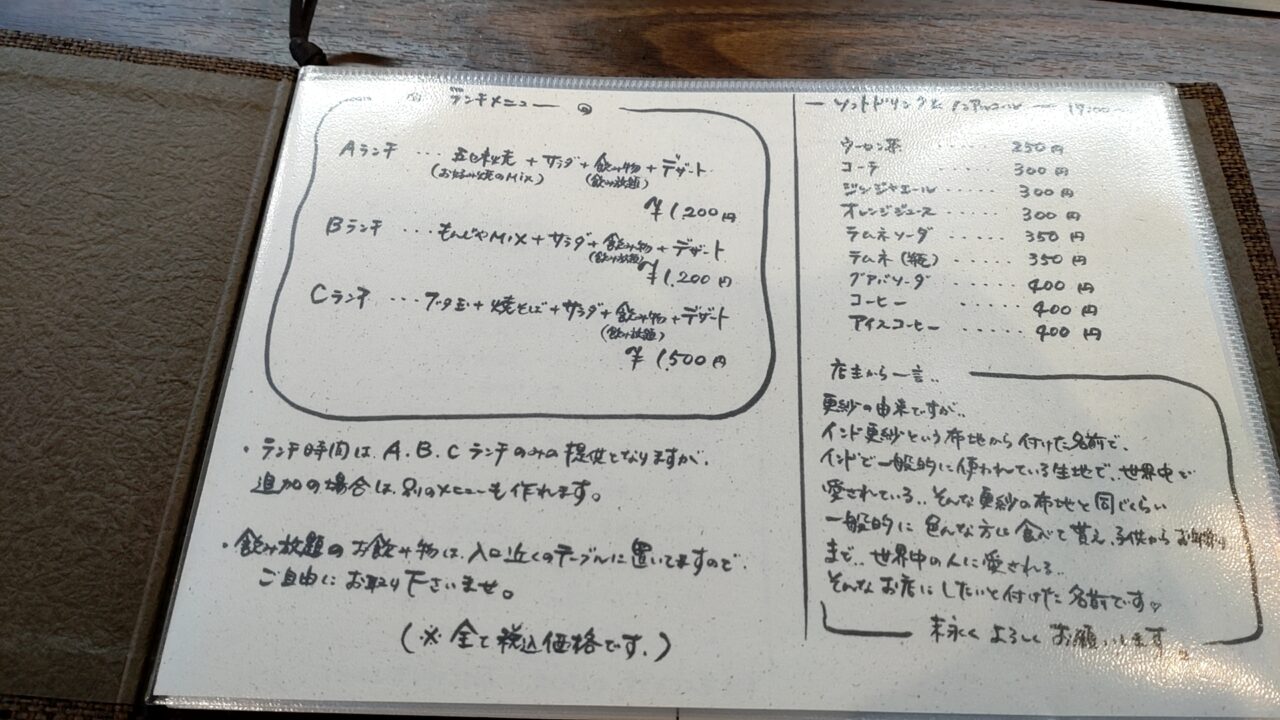 ランチメニュー
Aランチ … 五目お好焼 + サラダ + 飲み物 + デザート
(お好み焼のMix) (飲み放題)
¥1,200円
Bランチ … もんじゃMIX + サラダ + 飲み物 + デザート
(飲み放題)
¥1,200円
Cランチ … ブタ玉 + 焼そば + サラダ + 飲み物 + デザート
(飲み放題)
¥1,500円
・ランチ時間は、A.B.Cランチのみの提供となりますが、
追加の場合は、別のメニューも作れます。
・飲み放題のお飲み物は、入口近くのテーブルに置いてますので、
ご自由にお取り下さいませ。
(※全て税込価格です。)
ソフトドリンク& ノンアルコール 17:00〜
ウーロン茶 ...... 250円
コーラ ...... 300円
ジンジャエール ..... 300円
オレンジジュース ..... 300円
ラムネソーダ ...... 350円
ラムネ(瓶) ...... 350円
グアバソーダ ...... 400円
コーヒー ...... 400円
アイスコーヒー ...... 400円
店主から一言..
更紗の由来ですが..
インド更紗という布地から付けた名前で、
インドで一般的に使われている生地で、世界中で
愛されている..そんな更紗の布地と同じくらい
一般的に色んな方に食べて貰え、子供からお年寄り
まで..世界中の人に愛される..
そんなお店にしたいと付けた名前です♡
末永くよろしくお願いします